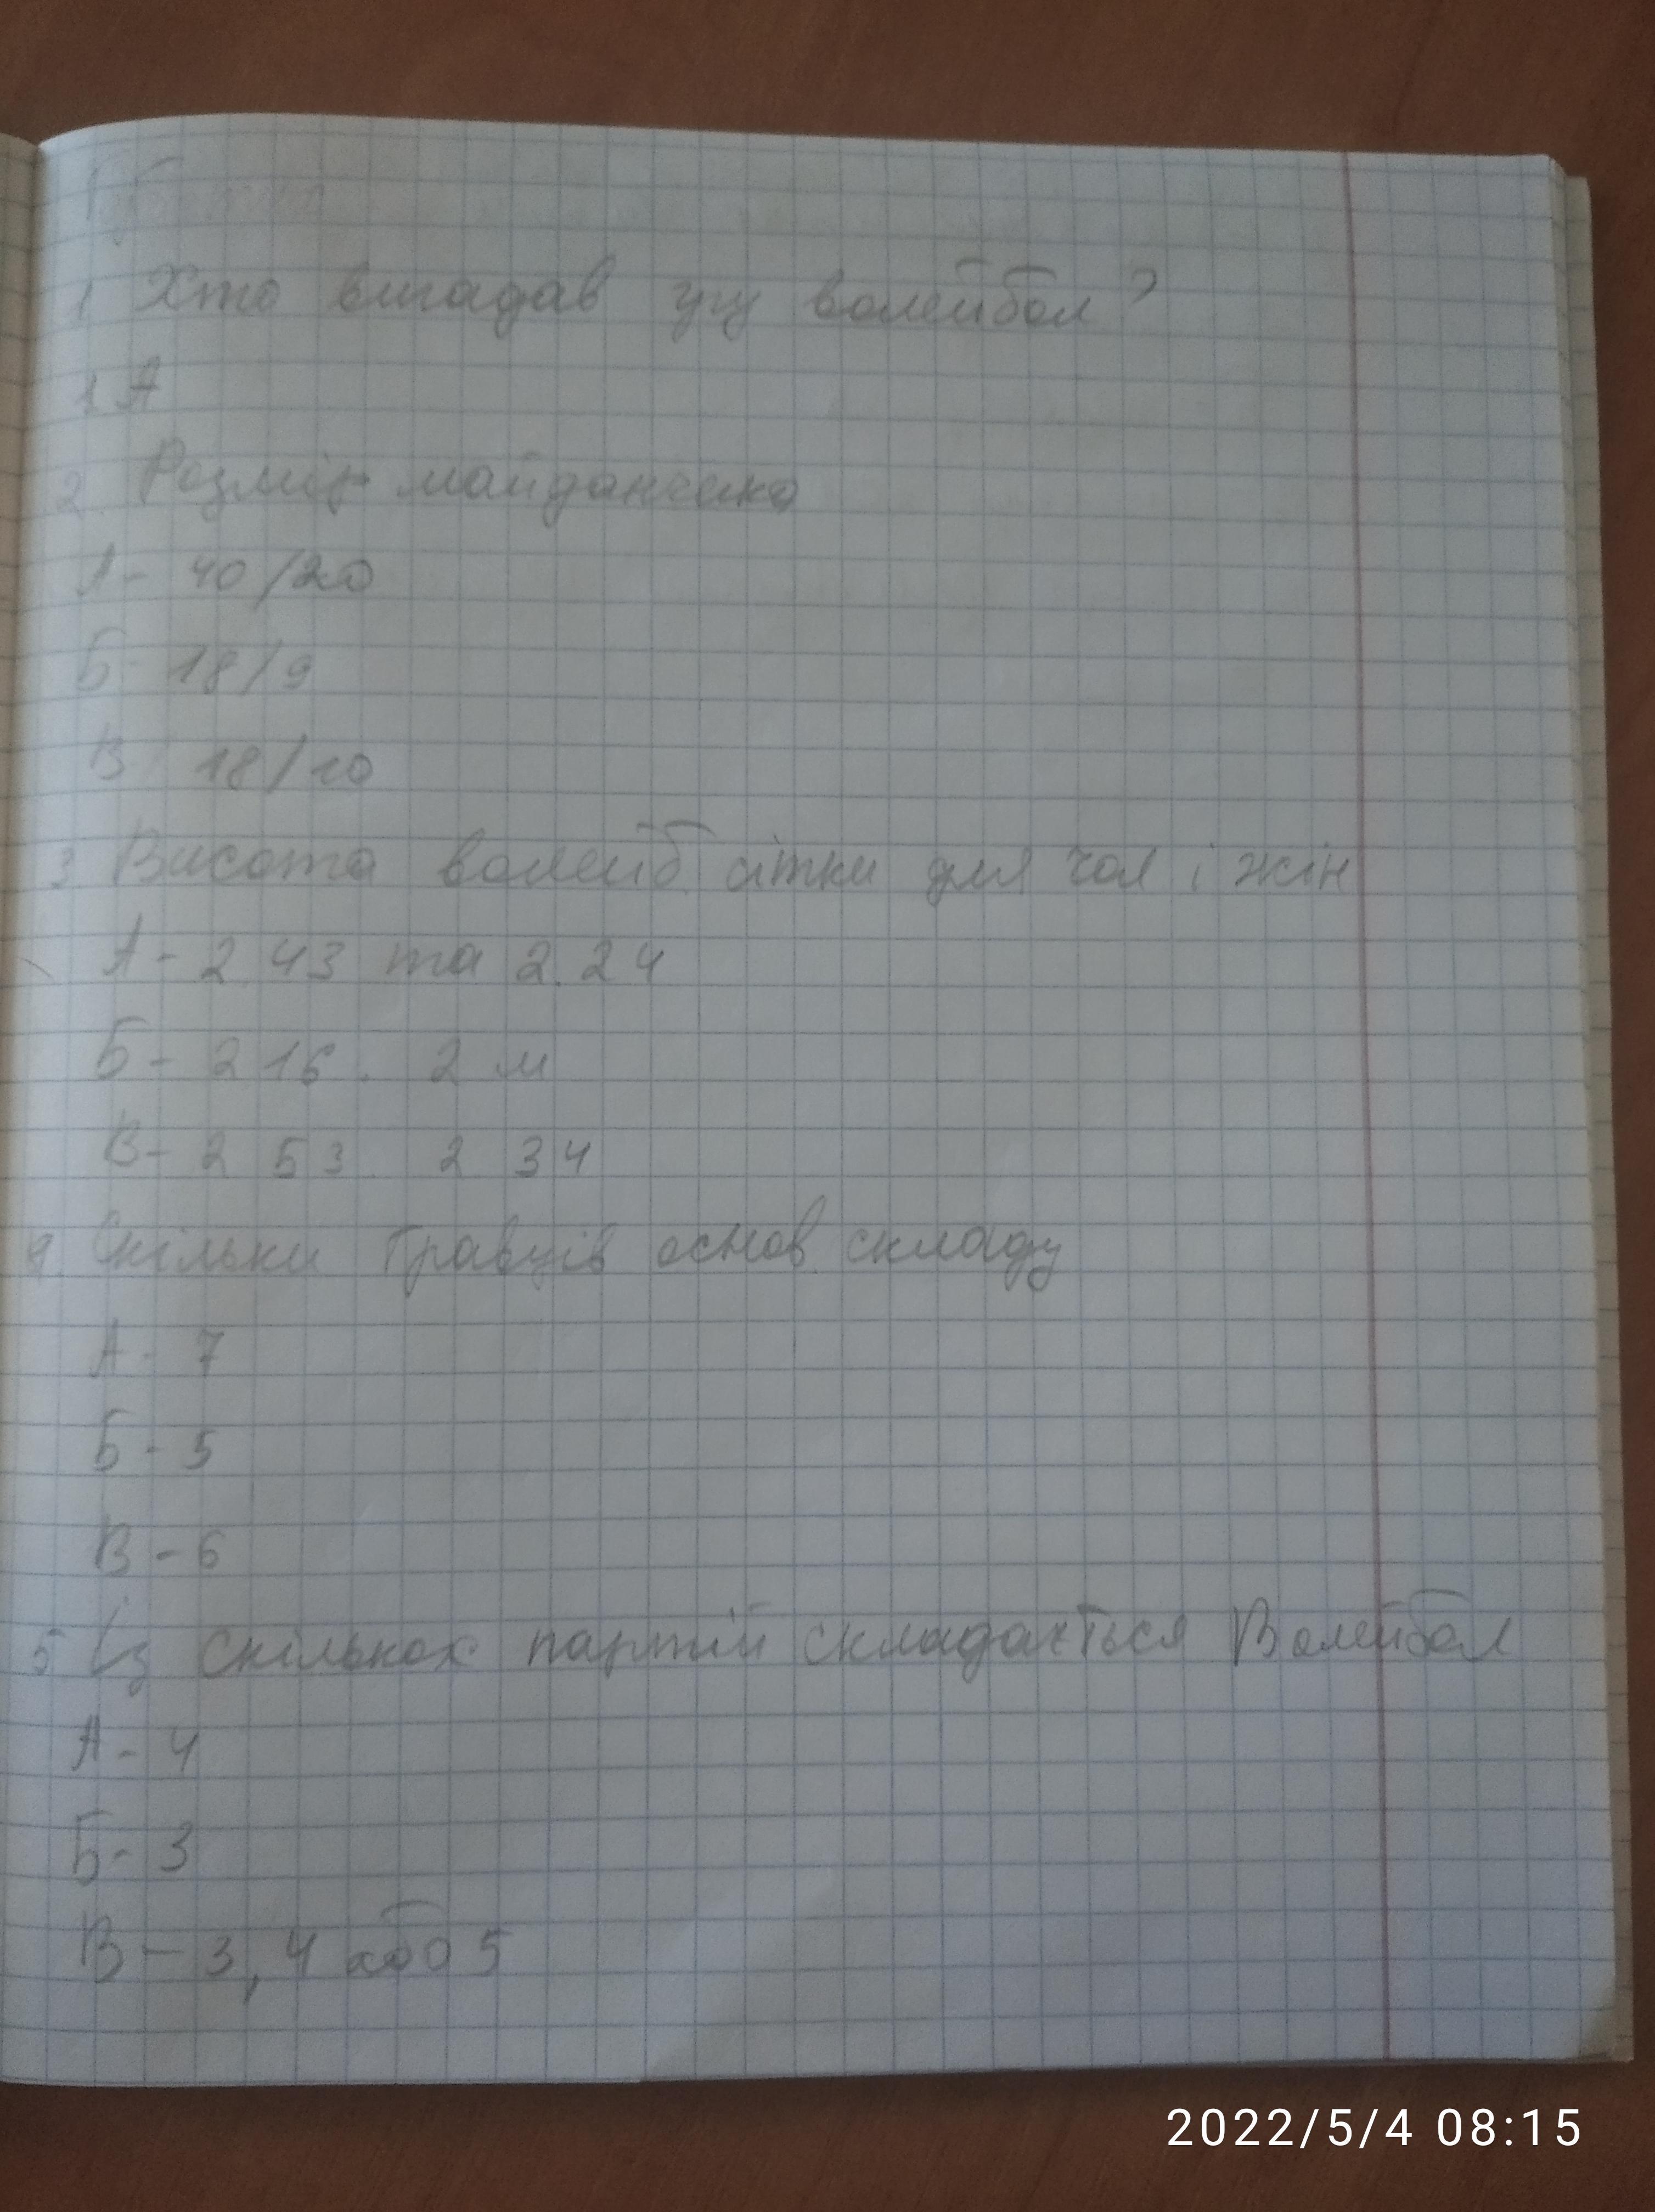 1 Хто вигадав гру волейбол?
1 А
2. Розмір майданчика
А - 40/20
Б - 18/9
В 18/10
3 Висота волейб. сітки для чол і жін
А - 2 43 та 2.24
Б - 2 16. 2 м
В - 2 53. 2 34
4. Скільки гравців основ. складу
А - 7
Б - 5
В - 6
5 Із скількох партій складається Волейбол
А - 4
Б - 3
В - 3, 4 або 5
2022/5/4 08:15